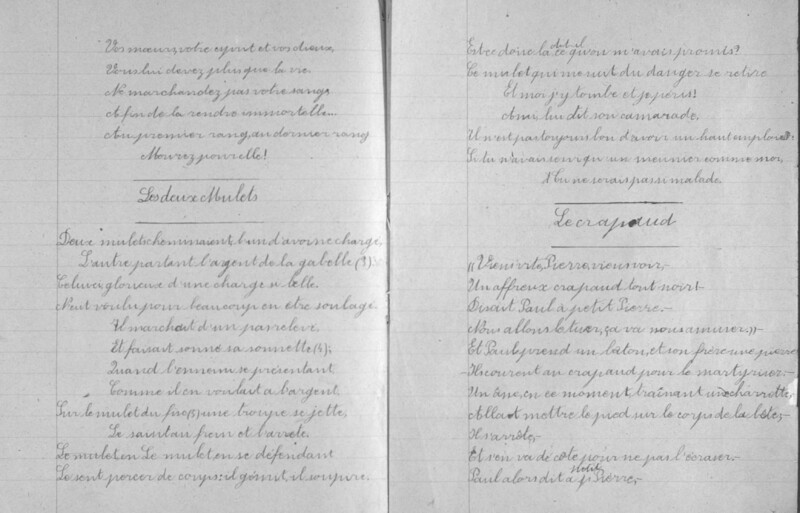 Vos mœurs, votre esprit et vos dieux,
Vous lui devez plus que la vie.
Ne marchandez pas votre sang,
Afin de la rendre immortelle...
Au premier rang, au dernier rang
Mourez pour elle!
Les deux Mulets
Deux mulets cheminaient, l'un d'avoine chargé,
L'autre portant l'argent de la gabelle (1)
Celui-ci, glorieux d'une charge si belle.
N'eut voulu pour beaucoup en être soulagé.
Il marchait d'un pas relevé.
Et faisait sonné sa sonnette (4);
Quand l'ennemi se présentant
Comme il en voulait à l'argent.
Sur le mulet du fisc une troupe se jette,
Le saint au frein et l'arrête.
Le mulet en Le mulet en se défendant
Le sent percer de coups: il gémit, il soupire.
Est ce donc là dit il ce qu'on m'avais promis?
Ce mulet qui me suit du danger se retire
Et moi j'y tombe et je péris!
Ami lui dit son camarade,
Il n'est pas toujours bon d'avoir un haut emploi:
Si tu n'avais servi qu'un meunier comme moi,
Tu ne serais pas si malade.
Le crapaud
«Viens vite, Pierre, viens voir,-
Un affreux crapaud tout noir!-
Disait Paul à petit Pierre.-
Nous allons le tuer, ça va nous amuser,»-
Et Paul prend un bâton, et son frère une pierre
Ils courent au crapaud pour le martyriser.-
Un âne, en ce moment, traînant une charrette,
Allait mettre le pied sur le corps de la bête,-
Il s'arrête,-
Et s'en va de côté pour ne pas l'écraser.-
Paul alors dit à petit Pierre,-